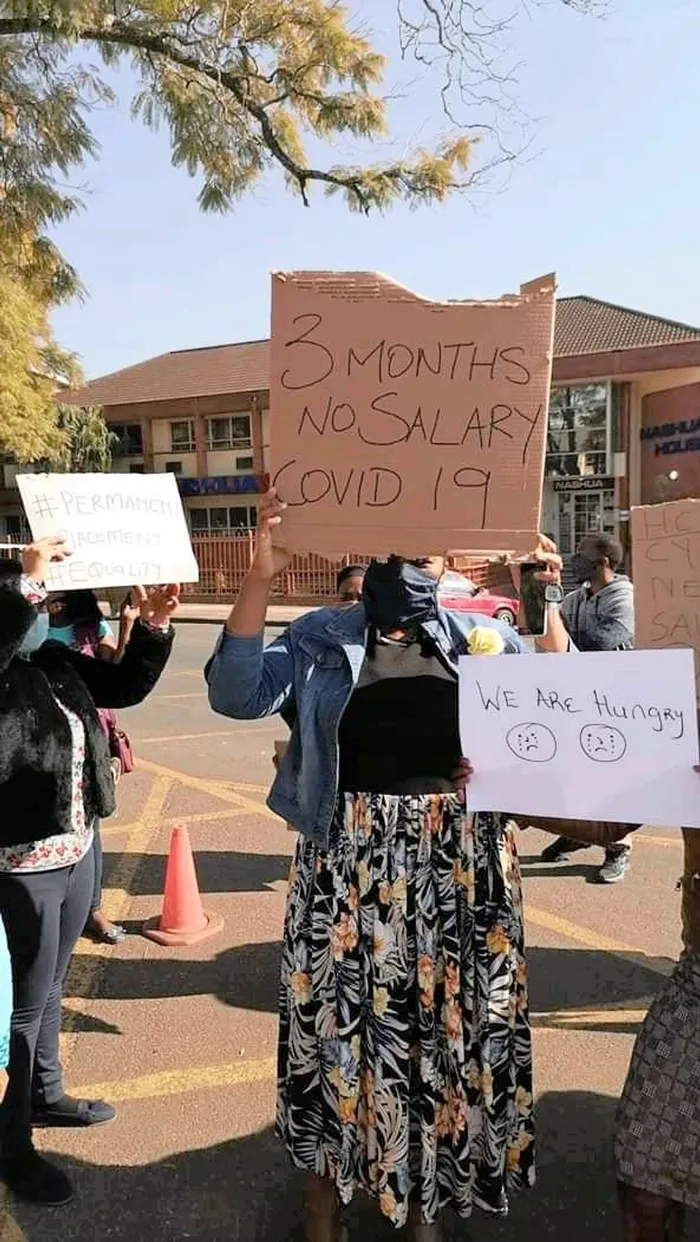 #PERMANENT
PLACEMENT
#EQUALITY
3 MONTHS
NO SALARY
COVID 19
WE ARE Hungry
NASHUA
NASHUA
HOUSE
HC
CY
NE
SA